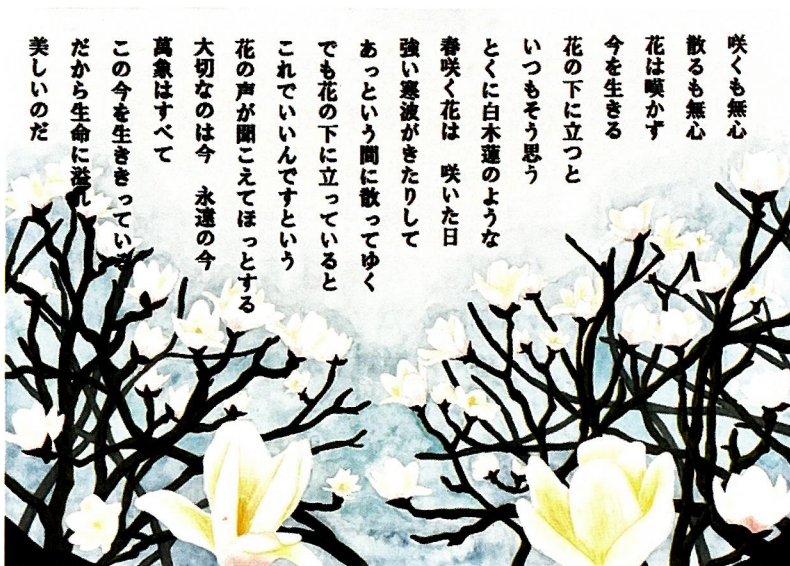 咲くも無心
散るも無心
花は嘆かず
今を生きる
花の下に立つと
いつもそう思う
とくに白木蓮のような
春咲く花は　咲いた日
強い寒波がきたりして
あっという間に散ってゆく
でも花の下に立っていると
これでいいんですという
花の声が聞こえてほっとする
大切なのは今　永遠の今
萬象はすべて
この今を生ききっている
だから生命に溢れ
美しいのだ